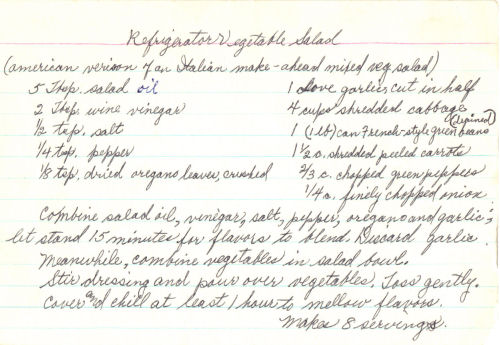 Refrigerator Vegetable Salad
(american verison of an Italian make-ahead mixed veg salad)
5 Tbsp. salad oil 1 clove garlic, cut in half
2 Tbsp. wine vinegar 4 cups shredded cabbage
1/2 tsp. salt 1 (1 lb) can French-style green beans (drained)
1/4 tsp. pepper 1 1/2 c. shredded peeled carrots
1/8 tsp. dried oregano leaves, crushed 2/3 c. chopped green peppers
1/4 c. finely chopped onion
Combine salad oil, vinegar, salt, pepper, oregano and garlic;
let stand 15 minutes for flavors to blend. Discard garlic.
Meanwhile, combine vegetables in salad bowl.
Stir dressing and pour over vegetables. Toss gently.
Cover and chill at least 1 hour to mellow flavors.
Makes 8 servings.